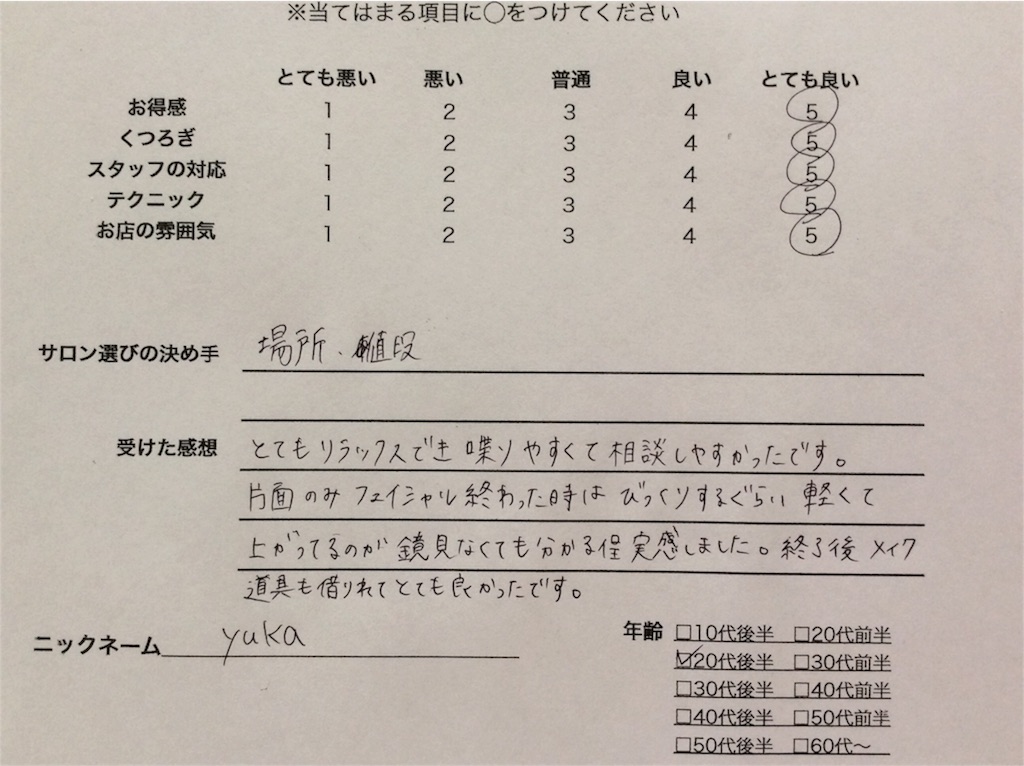 ※当てはまる項目に◯をつけてください
とても悪い 悪い 普通 良い とても良い
お得感 1 2 3 4 5
くつろぎ 1 2 3 4 5
スタッフの対応 1 2 3 4 5
テクニック 1 2 3 4 5
お店の雰囲気 1 2 3 4 5
サロン選びの決め手 場所、値段
受けた感想 とてもリラックスでき喋りやすくて相談しやすかったです。
片面のみフェイシャル終わった時はびっくりするぐらい軽くて
上がってるのが鏡見なくても分かる程実感しました。終了後メイク
道具も借りれてとても良かったです。
ニックネーム yuka
年齢 □10代後半 □20代前半
☑20代後半 □30代前半
□30代後半 □40代前半
□40代後半 □50代前半
□50代後半 □60代〜